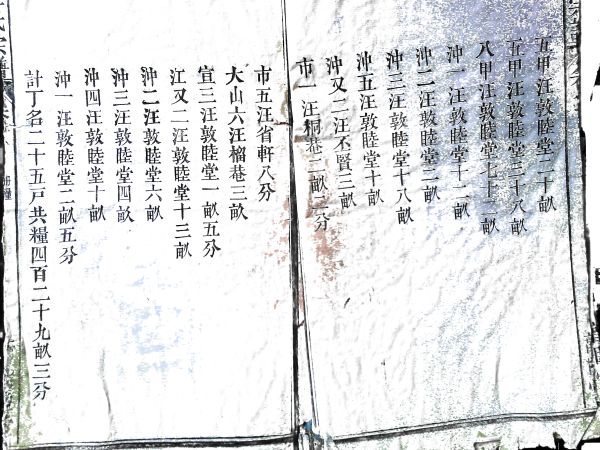 五甲汪敦睦堂二十畝
五甲汪敦睦堂三十八畝
八甲汪敦睦堂七十一畝
沖一汪敦睦堂十二畝
沖二汪敦睦堂二畝
沖三汪敦睦堂十八畝
沖五汪敦睦堂十畝
沖又二汪丕賢三畝
市一汪桐巷二畝二分
市五汪省軒八分
大山六汪榴巷三畝
宣三汪敦睦堂一畝五分
江又二汪敦睦堂十三畝
沖二汪敦睦堂六畝
沖三汪敦睦堂四畝
沖四汪敦睦堂十畝
沖一汪敦睦堂二畝五分
計丁名二十五戸共糧四百二十九畝三分
氏宗譜